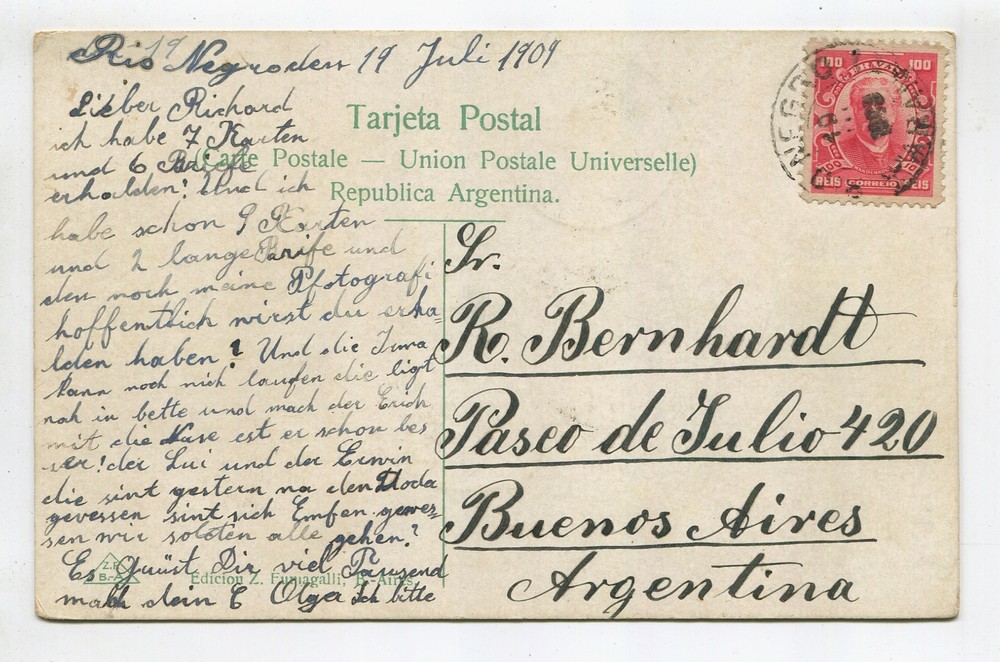 Rio Negro den 19 Juli 1909
Lieber Richard
ich habe 7 Karten
und 6 Briefe
erhalden! Und ich
habe schon 9 Karten
und 2 lange Brife und
den noch meine Pfotografi
hoffentlich wirst du erha-
lden haben? Und die Irma
kann noch nich laufen die ligt
noh in bette und mach der Erich
mit die Nase est er schon bes
ser! der Lui und der Erwin
die sint gestern na den
gevessen sint sich gewes-
sen wir solsten alle gehen?
Es Grüüst Dir viel Tausend
mall dein Olga Ich bitte
Tarjeta Postal
(Carte Postale — Union Postale Universelle)
Republica Argentina.
Sr.
R. Bernhardt
Paseo de Julio 420
Buenos Aires
Argentina
Z.F.
B.A.
Edicion Z. Fumagalli, B. Aires.
100 100
BRAZIL
100
REIS CORREIO REIS
NEGRO
19